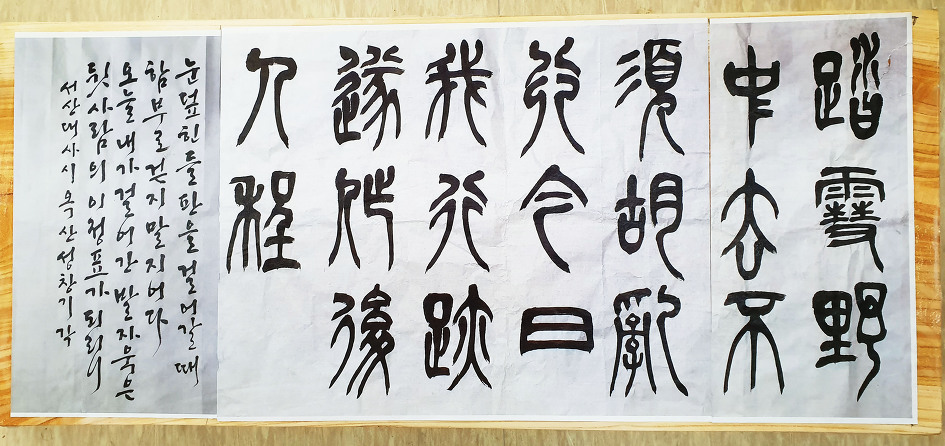 踏雪野
中去不
須胡亂
行今日
我行跡
遂作後
人程
눈덮힌들판을걸어갈때
함부로걷지말지어다
오늘내가걸어간발자욱은
뒷사람의이정표가되리니
서산대사시 옥산성창기각